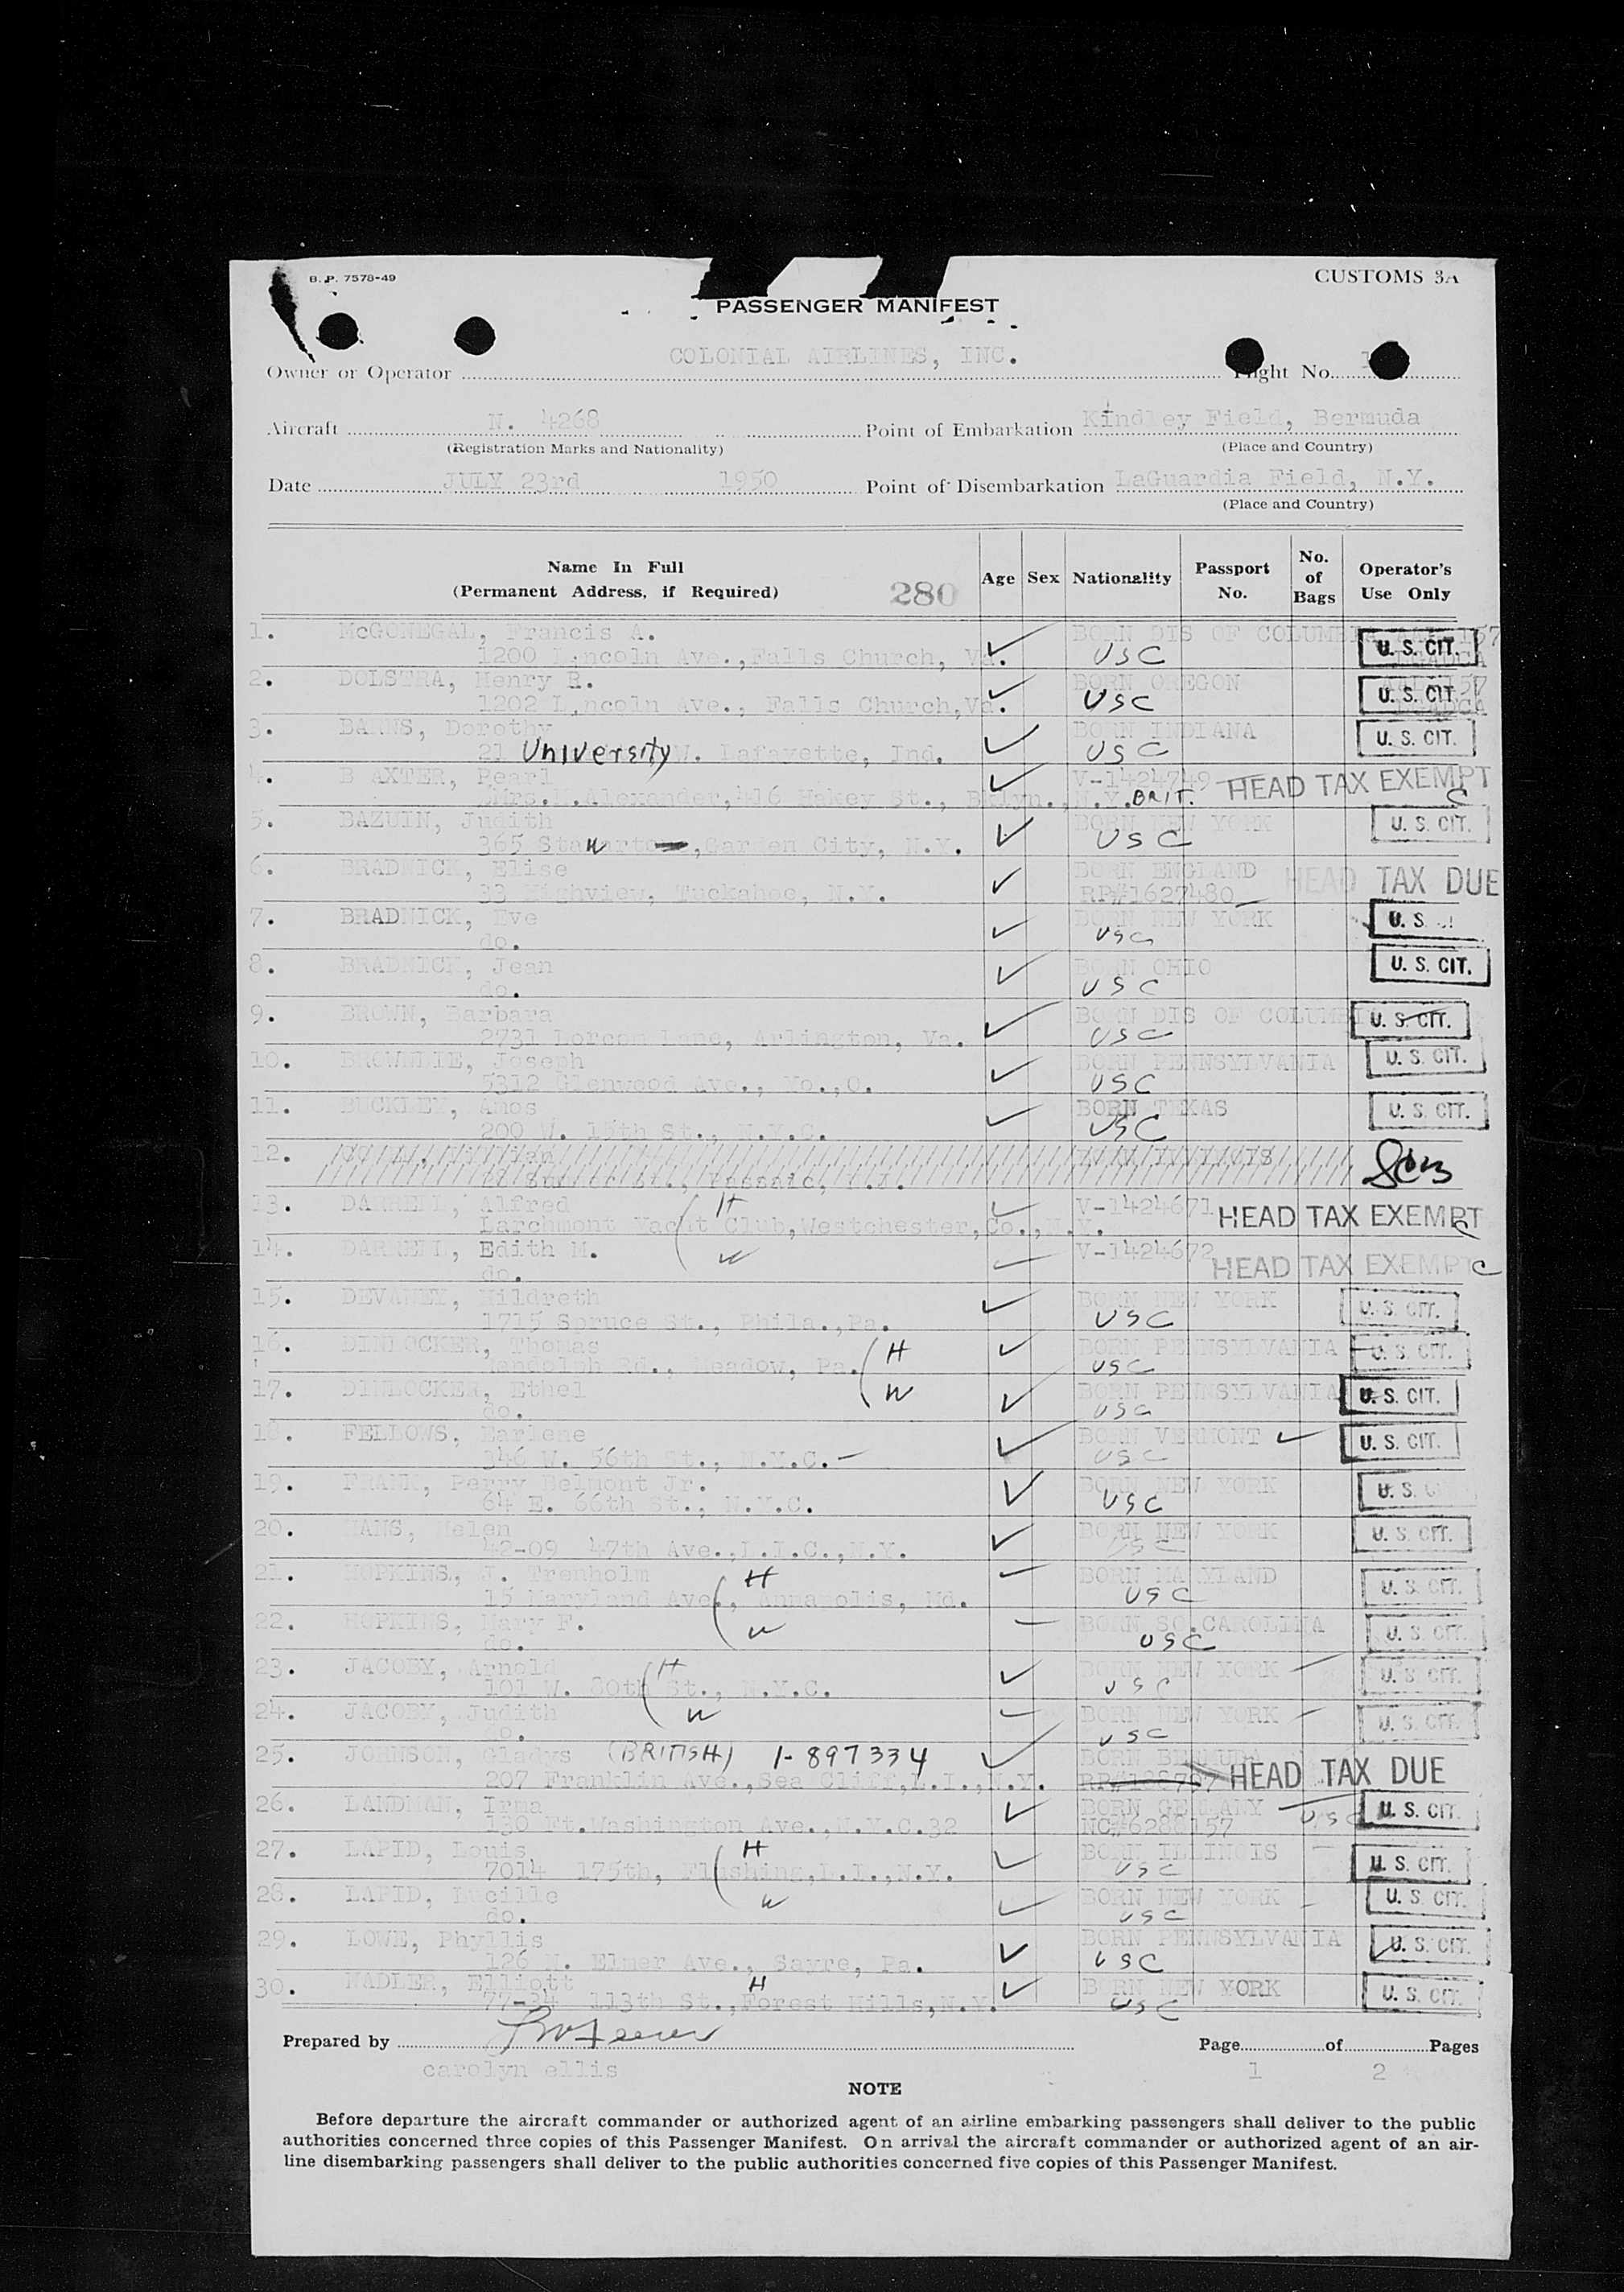 B. P. 7578-49
CUSTOMS 3A
PASSENGER MANIFEST
Owner or Operator COLONIAL AIRLINES, INC. Flight No.
Aircraft N. 4268 Point of Embarkation Kindley Field, Bermuda
(Registration Marks and Nationality) (Place and Country)
Date JULY 23rd 1950 Point of Disembarkation LaGuardia Field, N.Y.
(Place and Country)
Name In Full (Permanent Address, if Required) 280 Age Sex Nationality Passport No. No. of Bags Operator's Use Only
1. McGONEGAL, Francis A. BORN DIS OF COLUMBIA
1200 Lincoln Ave.,Falls Church, Va. USC U. S. CIT.
2. DOLSTRA, Henry R. BORN OREGON
1202 Lincoln Ave., Falls Church,Va. USC U. S. CIT.
3. BARNS, Dorothy BORN INDIANA
21 University W. Lafayette, Ind. USC U. S. CIT.
4. B AXTER, Pearl V-1424749 HEAD TAX EXEMPT
Mrs. Alexander,416 St., Bklyn.,N.Y. BRIT. C
5. BAZUIN, Judith BORN NEW YORK U. S. CIT.
365 Garden City, N.Y. USC
6. BRADNICK, Elise BORN ENGLAND HEAD TAX DUE
33 Highview, Tuckahoe, N.Y. RP#1627480
7. BRADNICK, Eve BORN NEW YORK U. S.
do. USC
8. BRADNICK, Jean BORN OHIO U. S. CIT.
do. USC
9. BROWN, Barbara BORN DIS OF COLUMBIA U. S. CIT.
2731 Lorcom Lane, Arlington, Va. USC
10. BROWNLIE, Joseph BORN PENNSYLVANIA U. S. CIT.
5312 Glenwood Ave., Yo.,O. USC
11. BUCKLEY, Amos BORN TEXAS U. S. CIT.
200 W. 15th St., N.Y.C. USC
12.
13. DARRELL, Alfred H V-1424671 HEAD TAX EXEMPT
Larchmont Yacht Club,Westchester,Co.,N.Y. C
14. DARRELL, Edith M. W V-1424672 HEAD TAX EXEMPT C
do.
15. DEVANEY, Hildreth BORN NEW YORK U. S. CIT.
1715 Spruce St., Phila.,Pa. USC
16. DINLOCKER, Thomas H BORN PENNSYLVANIA U. S. CIT.
Randolph Rd., Meadow, Pa. USC
17. DINLOCKER, Ethel W BORN PENNSYLVANIA U. S. CIT.
do. USC
18. FELLOWS, Earlene BORN VERMONT U. S. CIT.
346 W. 56th St., N.Y.C. USC
19. FRANK, Perry Belmont Jr. BORN NEW YORK U. S.
64 E. 66th St., N.Y.C. USC
20. HANS, Helen BORN NEW YORK U. S. CIT.
42-09 47th Ave.,L.I.C.,N.Y. USC
21. HOPKINS, J. Trenholm H BORN MARYLAND U. S. CIT.
15 Maryland Ave., Annapolis, Md. USC
22. HOPKINS, Mary F. W BORN SO.CAROLINA U. S. CIT.
do. USC
23. JACOBY, Arnold H BORN NEW YORK U. S. CIT.
101 W. 80th St., N.Y.C. USC
24. JACOBY, Judith W BORN NEW YORK U. S. CIT.
do. USC
25. JOHNSON, Gladys (BRITISH) 1-897334 BORN BERMUDA HEAD TAX DUE
207 Franklin Ave.,Sea Cliff,L.I.,N.Y.
26. LANDMAN, Irma BORN GERMANY USC U. S. CIT.
130 Ft.Washington Ave.,N.Y.C.32 NC#6280157
27. LAPID, Louis H BORN ILLINOIS U. S. CIT.
7014 175th, Flushing,L.I.,N.Y. USC
28. LAPID, Lucille W BORN NEW YORK U. S. CIT.
do. USC
29. LOWE, Phyllis BORN PENNSYLVANIA U. S. CIT.
126 N. Elmer Ave., Sayre, Pa. USC
30. NADLER, Elliott H BORN NEW YORK U. S. CIT.
77-34 113th St.,Forest Hills,N.Y. USC
Prepared by Page 1 of 2 Pages
carolyn ellis
NOTE
Before departure the aircraft commander or authorized agent of an airline embarking passengers shall deliver to the public
authorities concerned three copies of this Passenger Manifest. On arrival the aircraft commander or authorized agent of an air-
line disembarking passengers shall deliver to the public authorities concerned five copies of this Passenger Manifest.